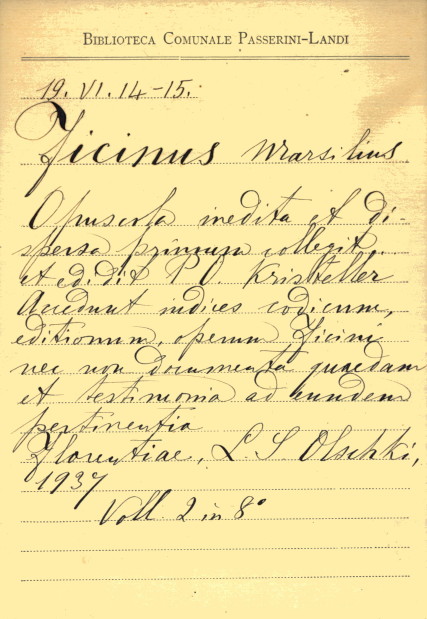 BIBLIOTECA COMUNALE PASSERINI-LANDI
19. VI. 14-15.
Ficinus Marsilius
Opuscola inedita et di-
spersa primum collegit
et edidit P O. Kristeller
Accedunt indices codicum,
editionum, operum Ficini
nec non documenta quaedam
et testimonia ad eundem
pertinentia
Florentiae, L. S Olschki,
1937
Voll. 2 in 8°